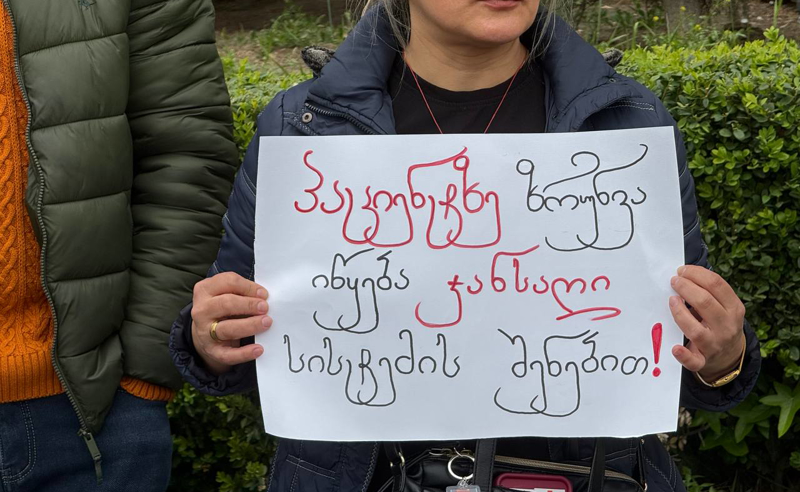 პაციენტზე ზრუნვა
იწყება ჯანსაღი
სისტემის შენებით!